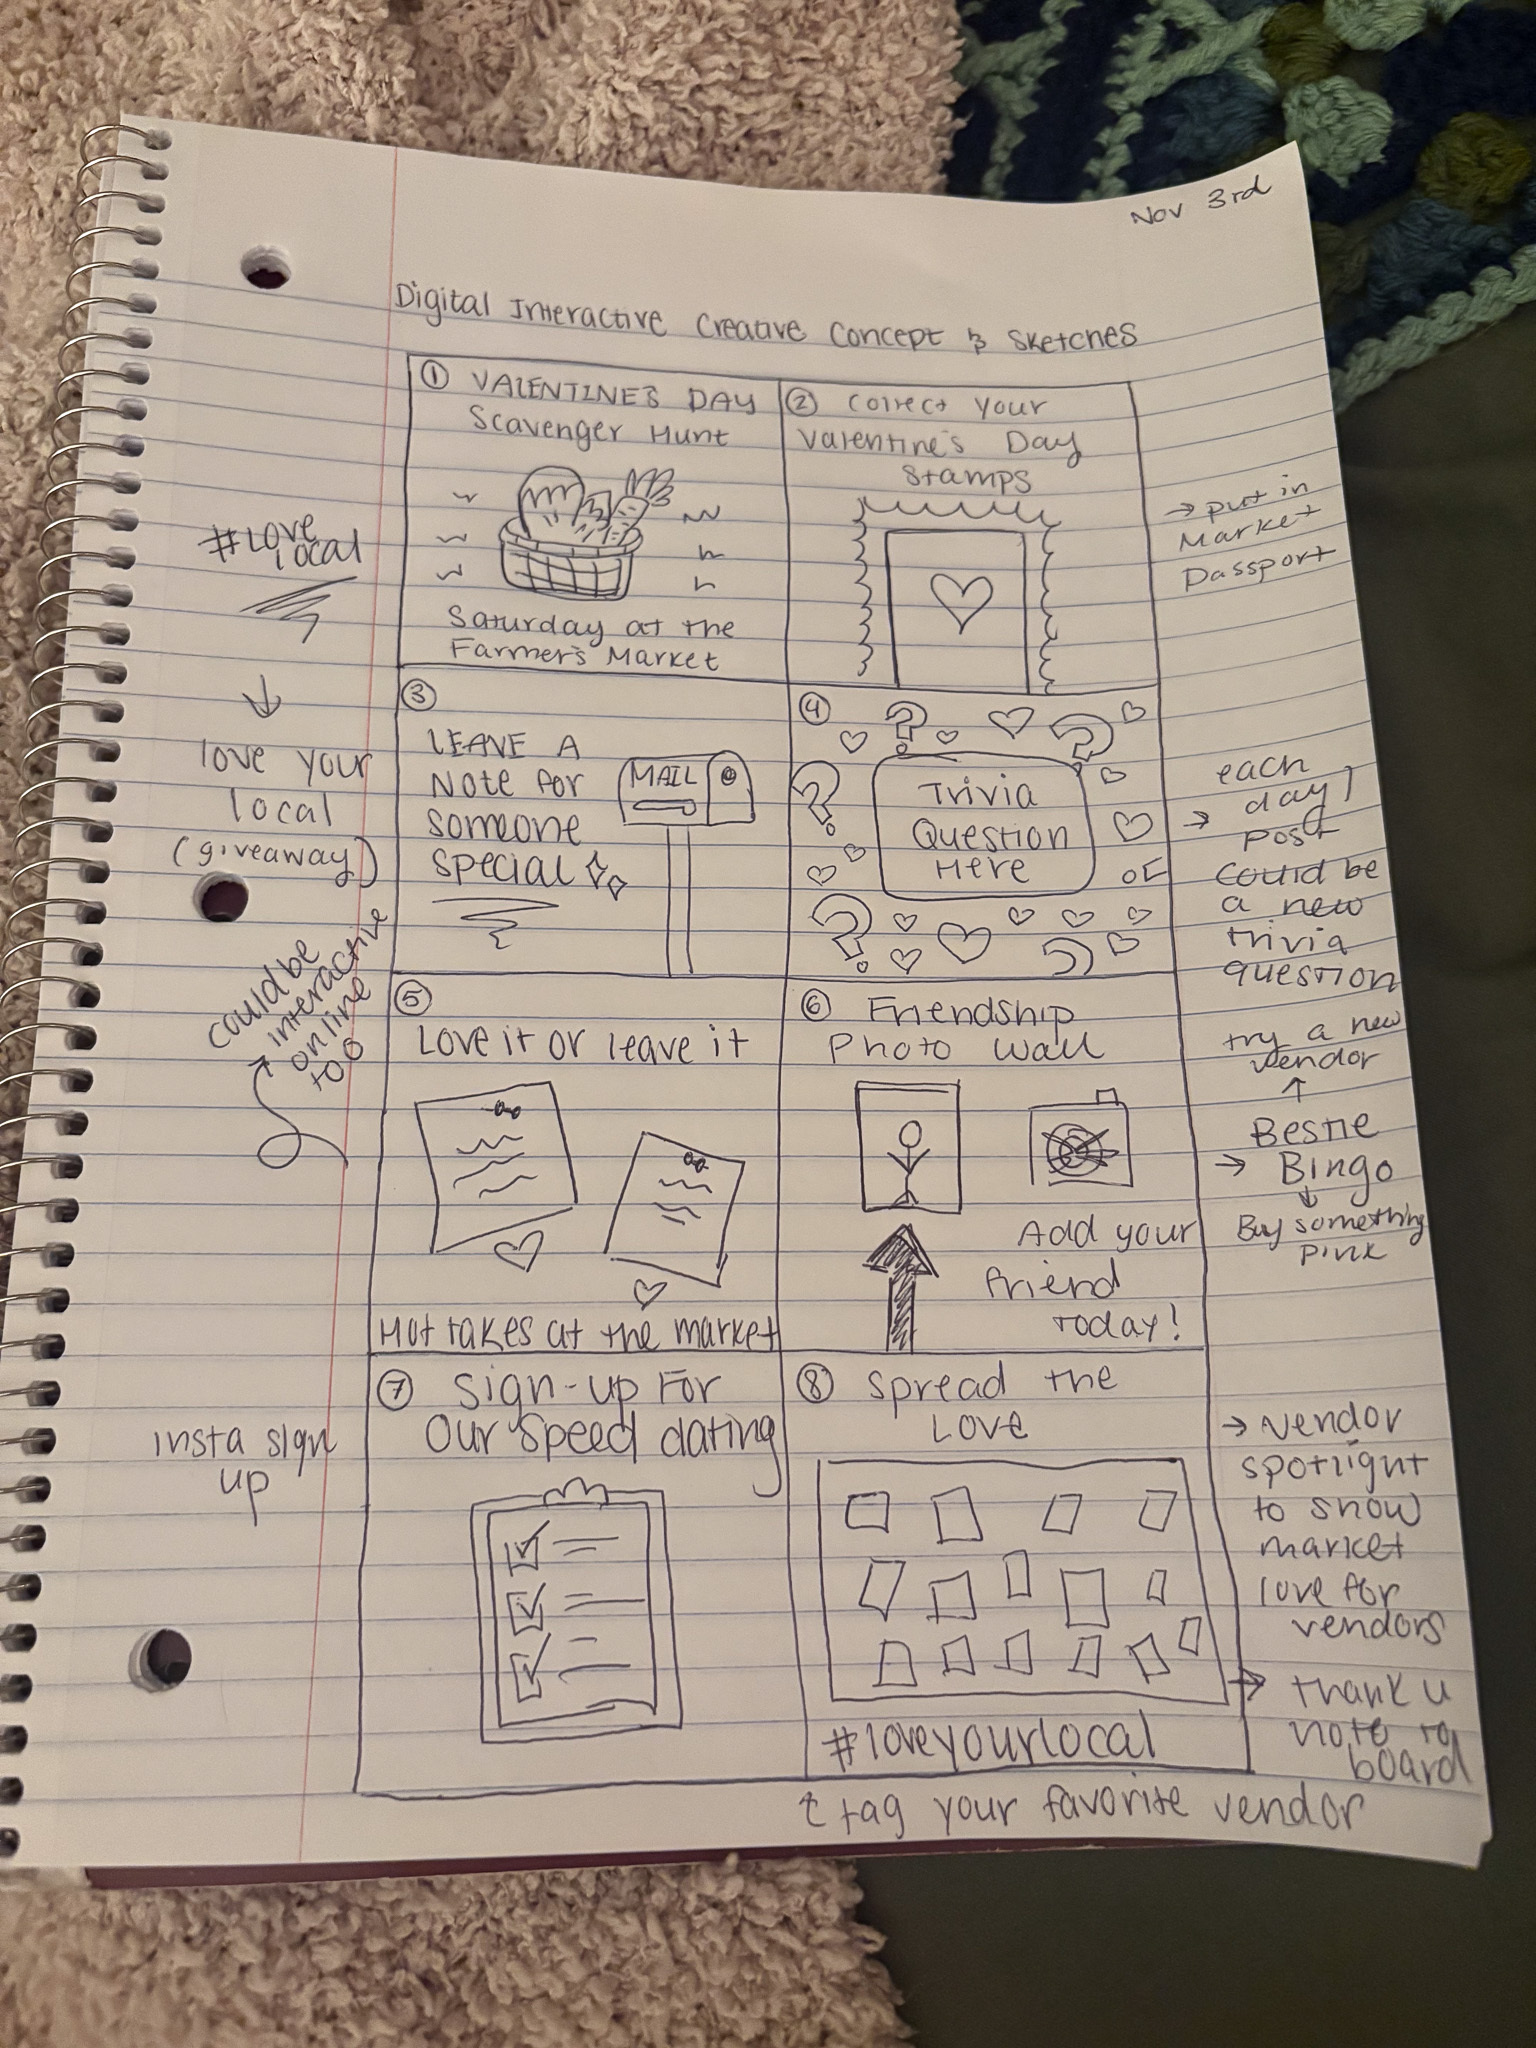 Nov 3rd
Digital Interactive Creative Concept & Sketches
① VALENTINE'S DAY
Scavenger Hunt
Saturday at the
Farmer's Market
② Collect your
Valentine's Day
Stamps
→ put in
Market
Passport
#LOVE
local
↓
love your
local
(giveaway)
③
LEAVE A
Note for
someone
special
MAIL
④
Trivia
Question
Here
→ each
day/
post
could be
a new
trivia
question
⑤
Love it or leave it
Hot takes at the market
could be
interactive
online
too
⑥ Friendship
Photo Wall
Add your
friend
today!
try a new
vendor
↑
Bestie
→ Bingo
↓
Buy something
pink
⑦ Sign-up For
Our Speed dating
insta sign
up
⑧ Spread the
Love
#loveyourlocal
↑ tag your favorite vendor
→ vendor
spotlight
to show
market
love for
vendors
→ thank u
note to
board